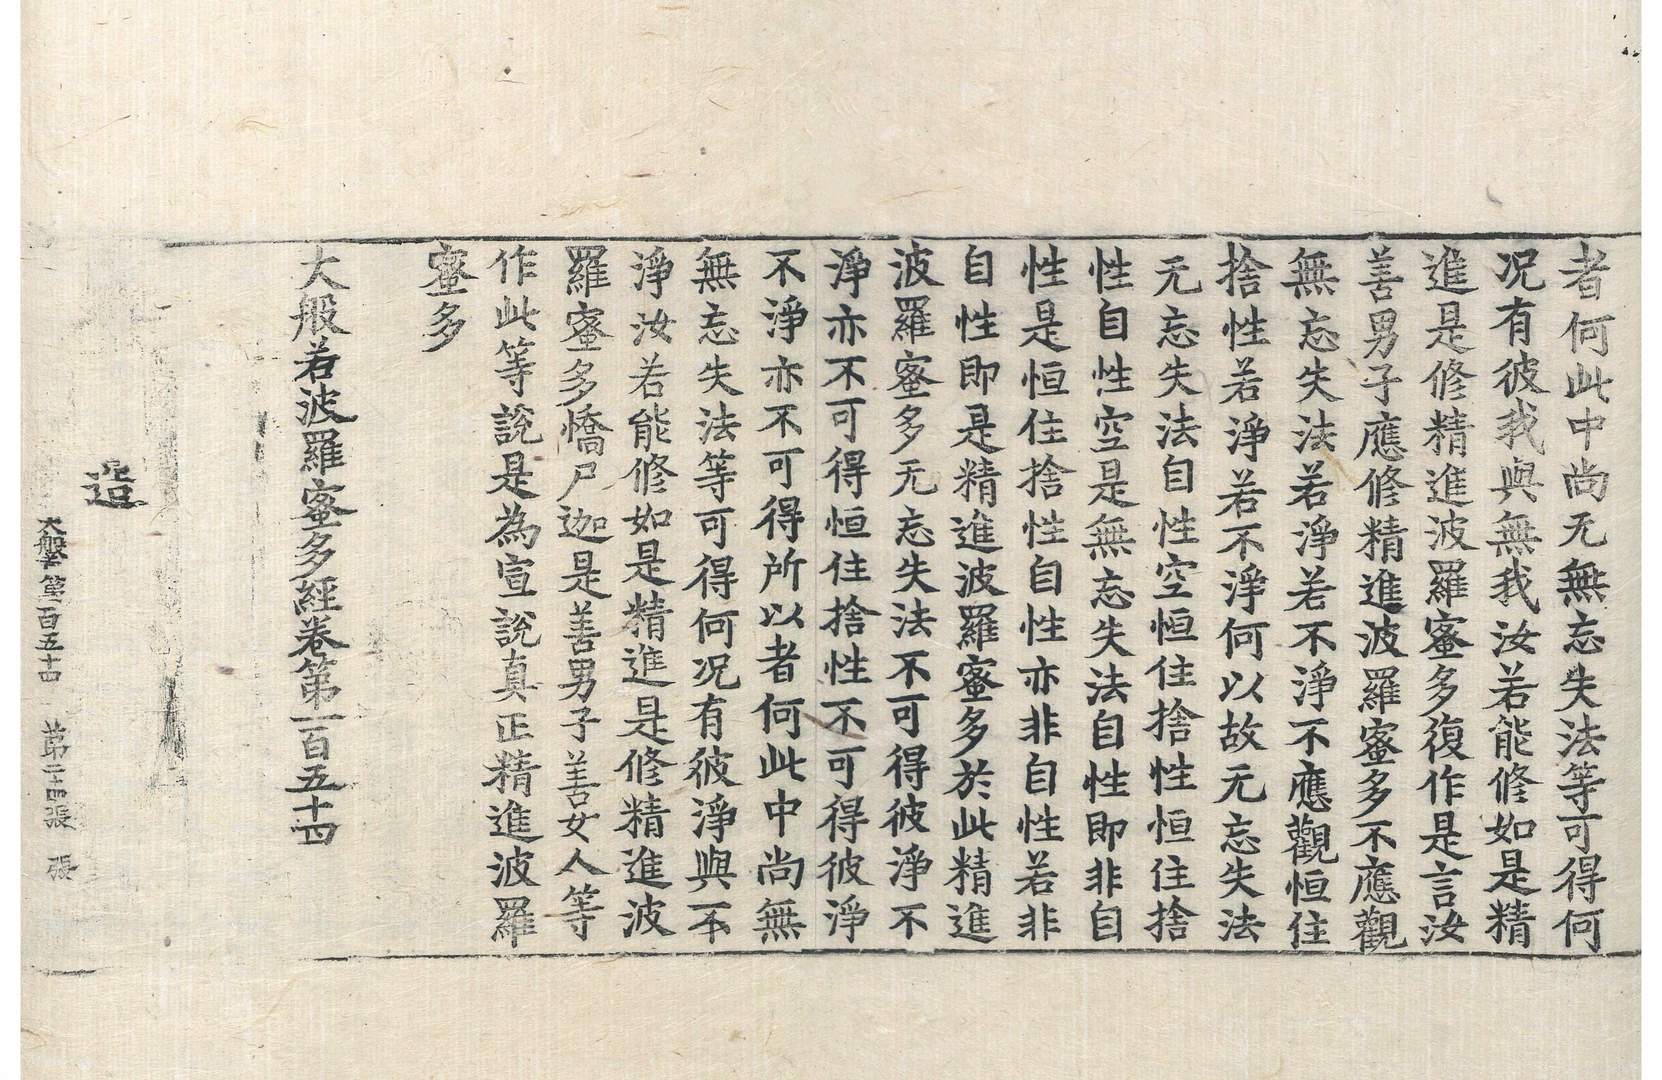 者何此中尚无無忘失法等可得何
况有彼我與無我汝若能修如是精
進是修精進波羅蜜多復作是言汝
善男子應修精進波羅蜜多不應觀
無忘失法若淨若不淨不應觀恒住
捨性若淨若不淨何以故无忘失法
无忘失法自性空恒住捨性恒住捨
性自性空是無忘失法自性即非自
性是恒住捨性自性亦非自性若非
自性即是精進波羅蜜多於此精進
波羅蜜多无忘失法不可得彼淨不
淨亦不可得恒住捨性不可得彼淨
不淨亦不可得所以者何此中尚無
無忘失法等可得何况有彼淨與不
淨汝若能修如是精進是修精進波
羅蜜多憍尸迦是善男子善女人等
作此等說是為宣說真正精進波羅
蜜多
大般若波羅蜜多經卷第一百五十四
造
大般若第一百五十四 第二十四張 張